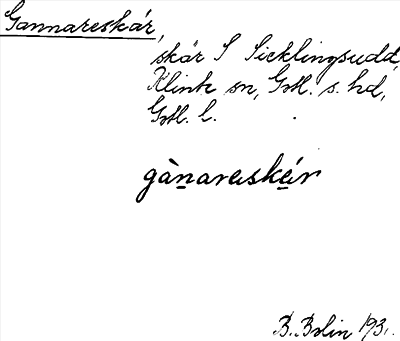 Gannareskär,
skär S Sicklingsudd,
Klinte sn, Gotl. s. hd,
Gotl. l.
gànaraskér
B. Bolin 193.